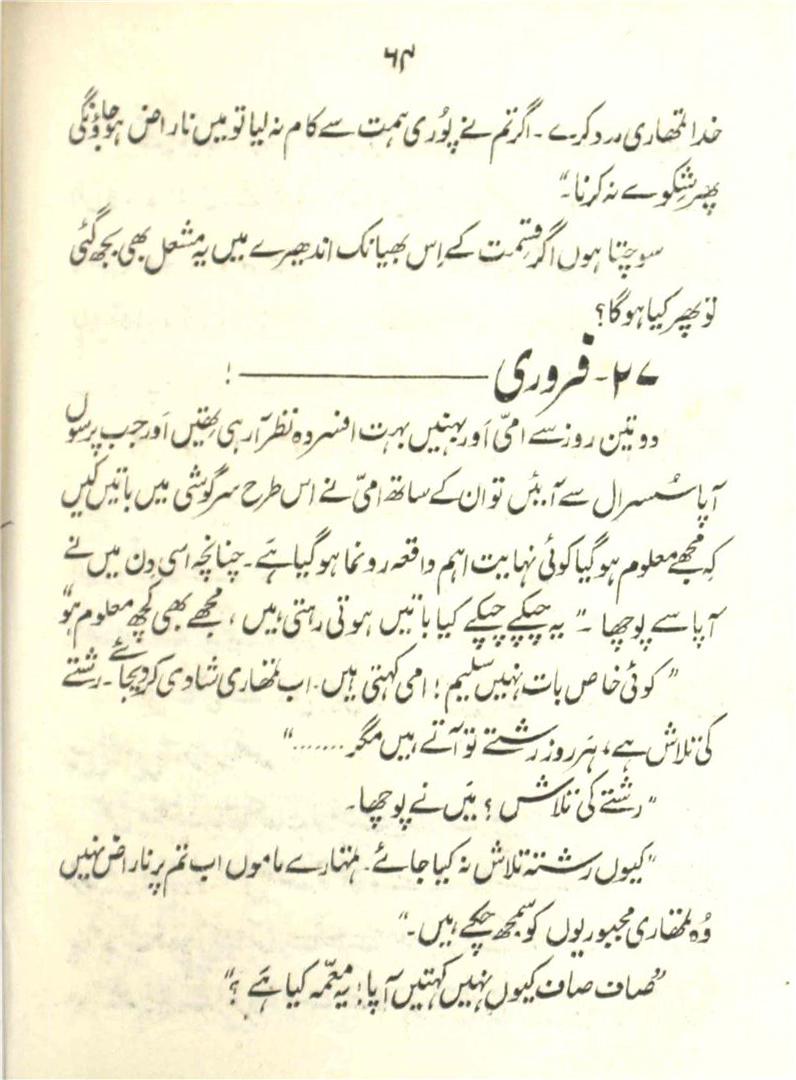 ۶۴
خدا تمھاری مدد کرے ۔ اگر تم نے پُوری ہمت سے کام نہ لیا تو میں ناراض ہو جاؤنگی
پھر شکوے نہ کرنا ۔"
سوچتا ہوں اگر قسمت کے اِس بھیانک اندھیرے میں یہ مشعل بھی بجھ گئی
تو پھر کیا ہوگا؟
۲۷ - فروری ——— !
دو تین روز سے امیّ اَور بہنیں بہت افسردہ نظر آ رہی تھیں اَور جب پرسوں
آپا سُسرال سے آئیں تو ان کے ساتھ امیّ نے اس طرح سرگوشی میں باتیں کیں
کہ مجھے معلوم ہو گیا کوئی نہایت اہم واقعہ رونما ہو گیا ہَے ۔ چنانچہ اسی دِن میں نے
آپا سے پوچھا ۔" یہ چپکے چپکے کیا باتیں ہوتی رہتی ہیں ، مجھے بھی کچھ معلوم ہو"
" کوئی خاص بات نہیں سلیم ! امی کہتی ہیں ۔ اب تمھاری شادی کر دیجائے ۔ رشتے
کی تلاش ہے ، ہَر روز رشتے تو آتے ہیں مگر ......."
"رشتے کی تلاش ؟ میَں نے پوچھا ۔
"کیوں رشتہ تلاش نہ کیا جائے ۔ تمہارے ماموں اب تم پر ناراض نہیں
وُہ تمھاری مجبوریوں کو سمجھ چکے ہیں ۔"
"صاف صاف کیوں نہیں کہتیں آپا ! یہ معمّہ کیا ہَے ؟"